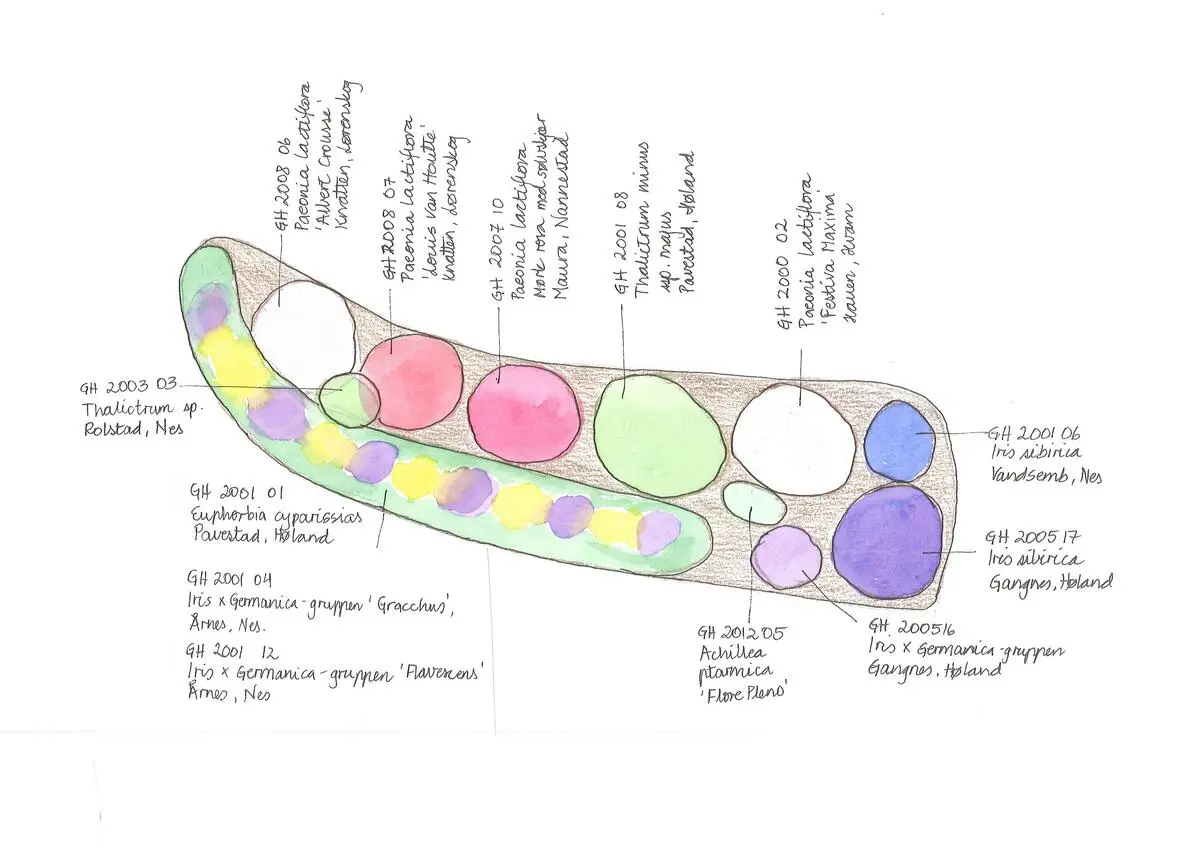 GH 2008 06
Paeonia lactiflora
'Albert Crousse'
Knatten, Lørenskog
GH 2008 07
Paeonia lactiflora
'Louis van Houtte'
Knatten, Lørenskog
GH 2007 10
Paeonia lactiflora
Mørk rosa med sølvskjær
Maura, Nannestad
GH 2001 08
Thalictrum minus
sp. majus
Pavestad, Høland
GH 2000 02
Paeonia lactiflora
'Festiva Maxima'
Hauen, Hvam
GH 2003 03
Thalictrum sp.
Rolstad, Nes
GH 2001 06
Iris sibirica
Vandsemb, Nes
GH 2001 01
Euphorbia cyparissias
Pavestad, Høland
GH 2005 17
Iris sibirica
Gangnes, Høland
GH 2001 04
Iris x Germanica-gruppen 'Gracchus',
Årnes, Nes.
GH 2001 12
Iris x Germanica-gruppen 'Flavescens'
Årnes, Nes
GH 2012 05
Achillea
ptarmica
'Flore Pleno'
GH. 200516
Iris x Germanica-gruppen
Gangnes, Høland